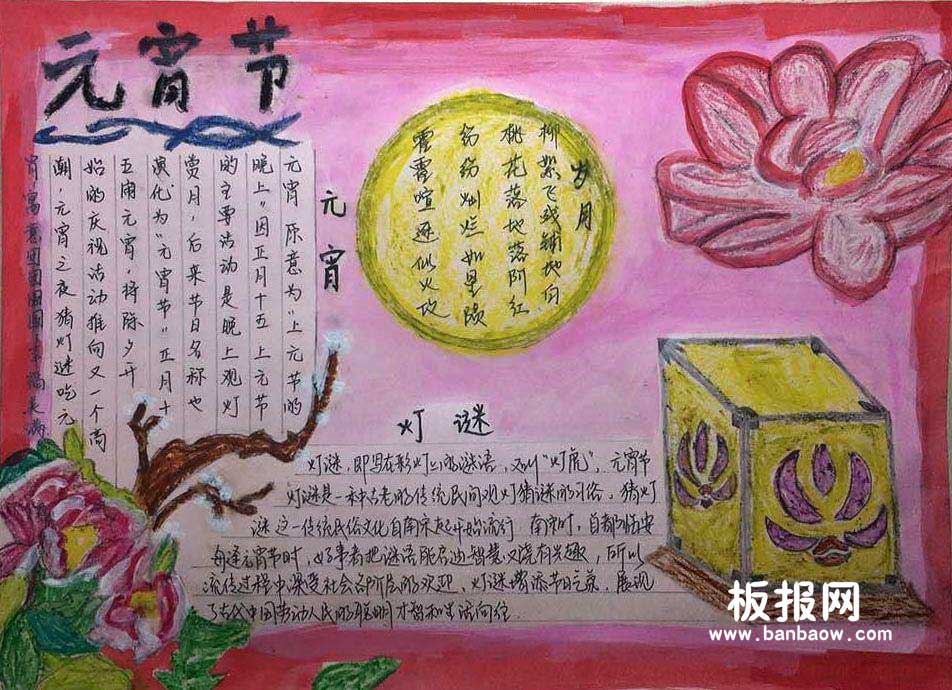 元宵节
元宵
元宵原意为“上元节的
晚上”因正月十五上元节
的主要活动是晚上观灯
赏月，后来节日名称也
演化为“元宵节”正月十
五闹元宵，将除夕开
始的庆祝活动推向又一个高
潮，元宵之夜猜灯谜吃元
宵寓意团团圆圆幸福美满
岁月
柳絮飞残铺地白
桃花落地落阶红
纷纷灿烂如星陨
霍霍喧逐似火攻
灯谜
灯谜，即写在彩灯上的谜语，又叫“灯虎”，元宵节
灯谜是一种古老的传统民间观灯猜谜的习俗，猜灯
谜这一传统民俗文化自南宋起开始流行 南宋时，首都临安
每逢元宵节时，好事者把谜语 启迪智慧又饶有兴趣，所以
流传过程中深受社会各阶层的欢迎，灯谜增添节日气氛，展现
了古代中国劳动人民的聪明才智和生活向往.
板报网
www.banbaow.com